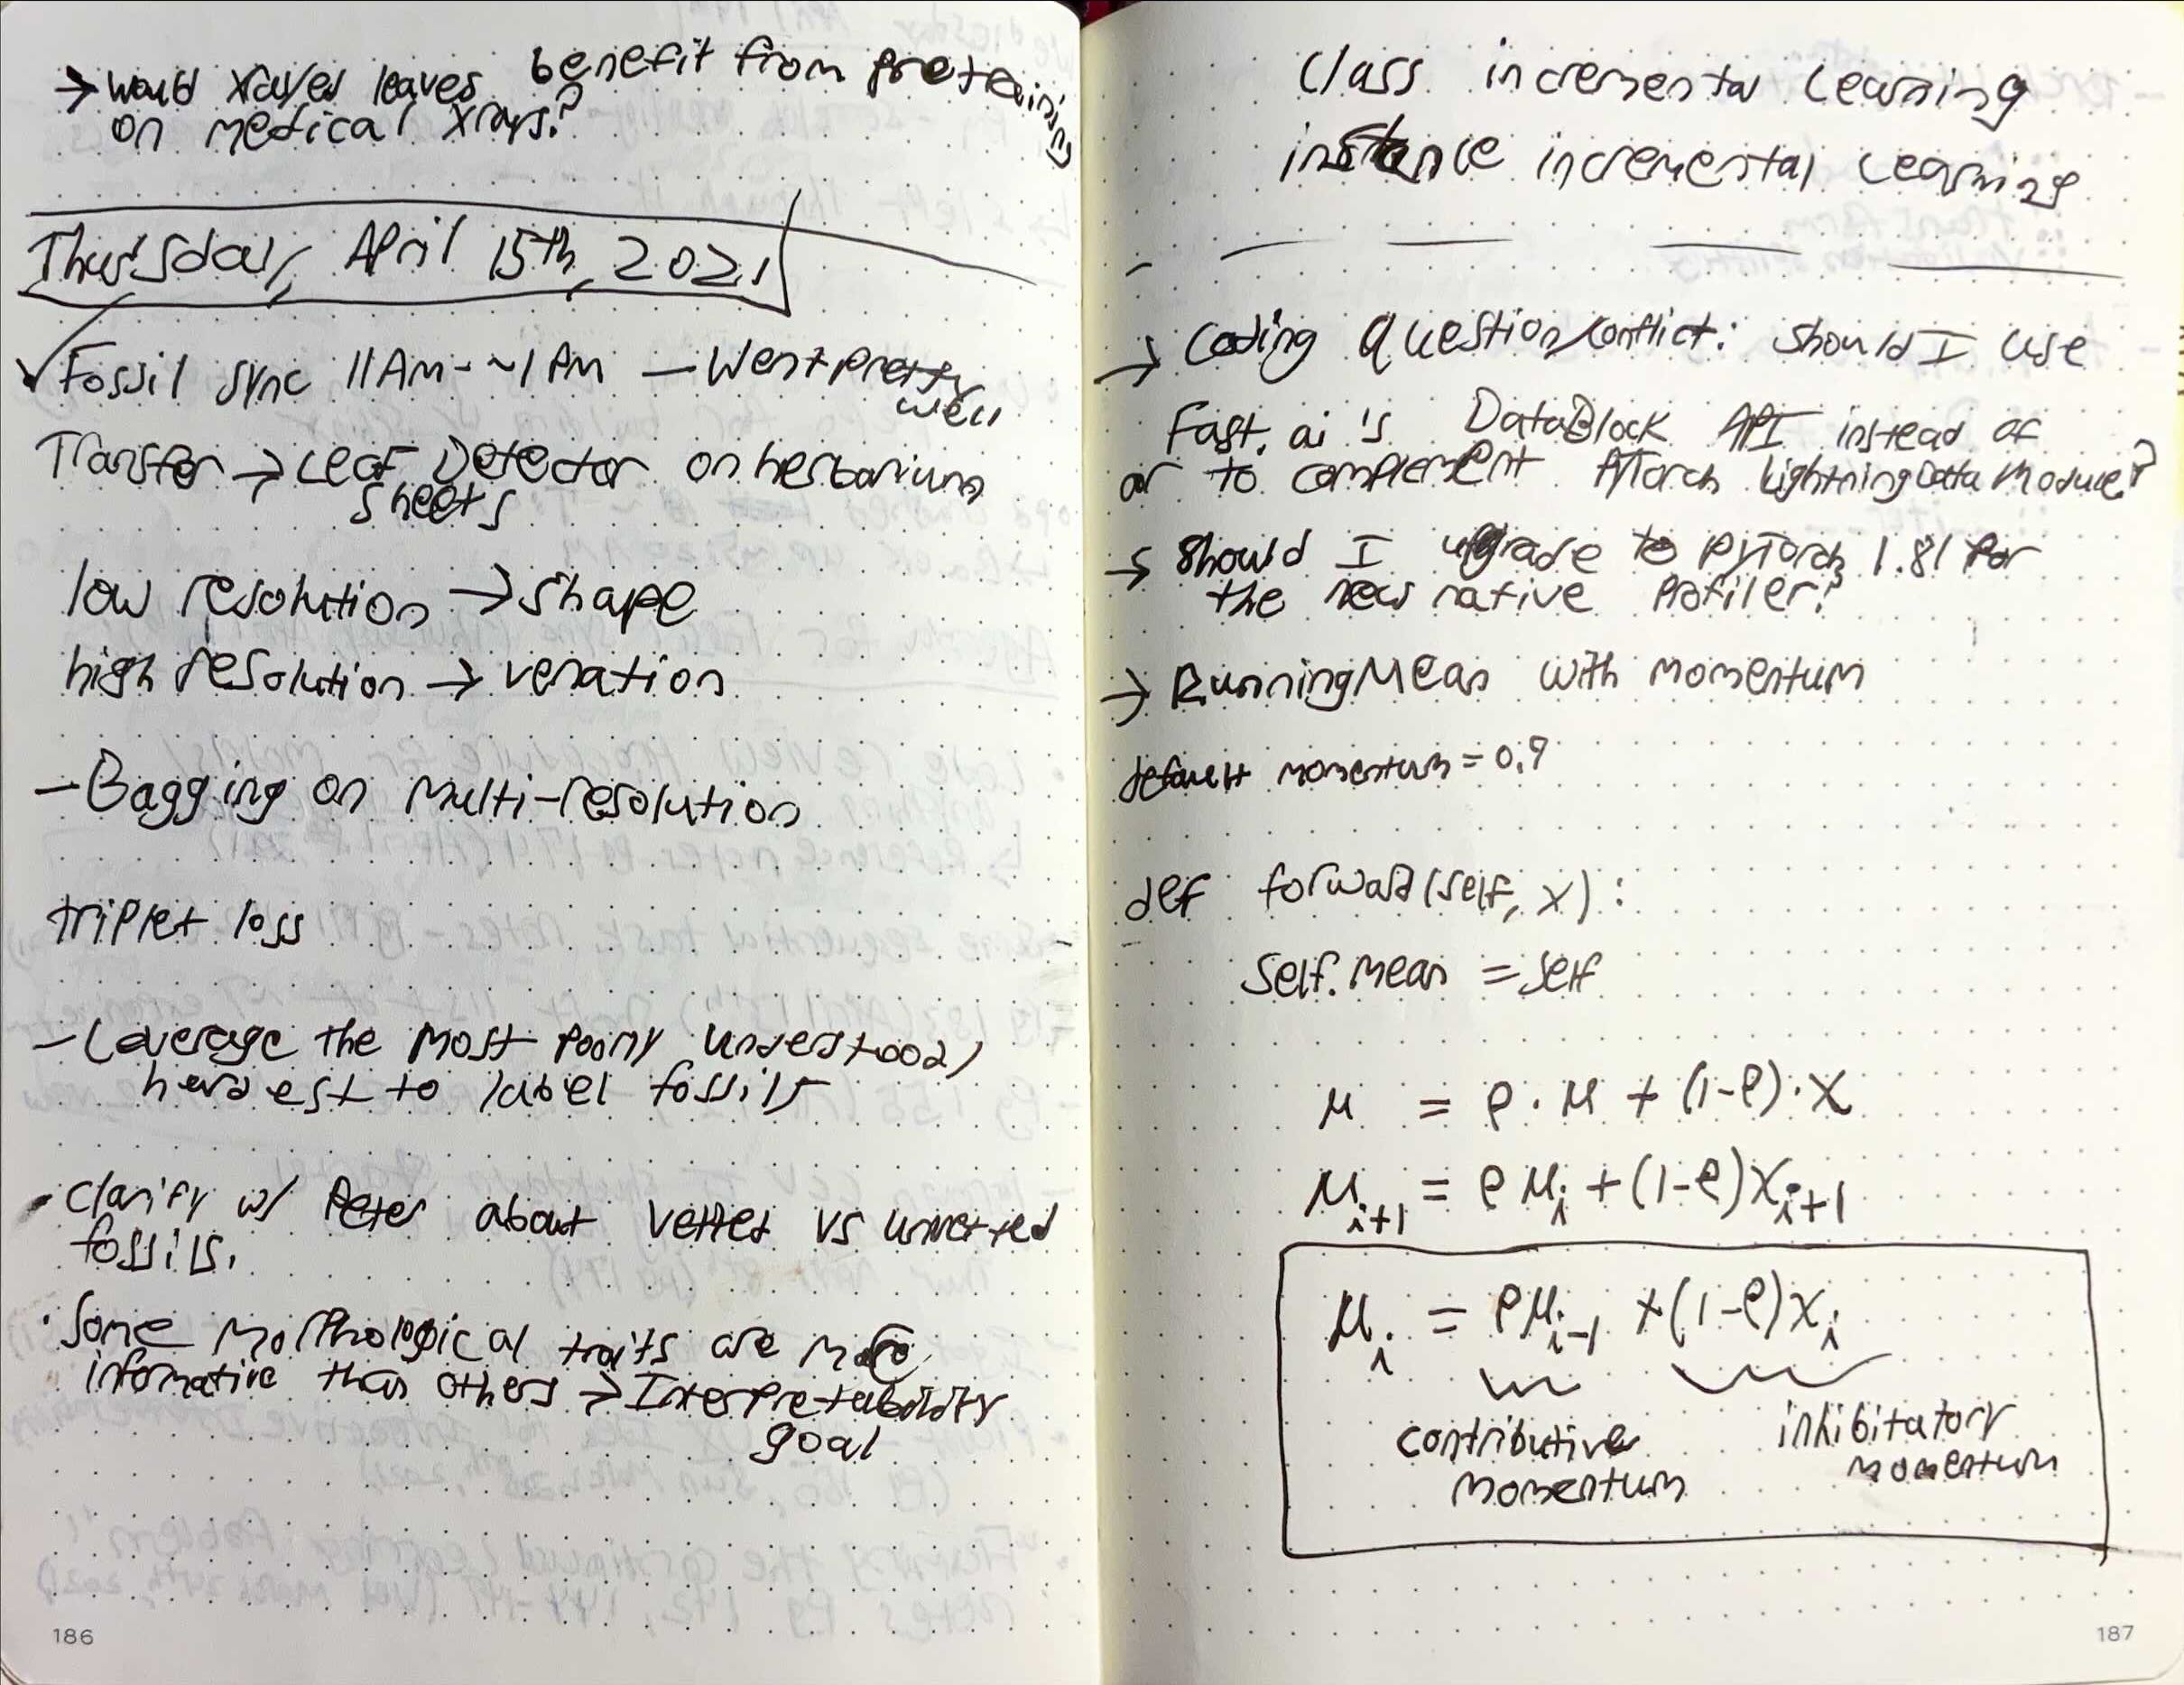 → would xrayed leaves benefit from pretraining
on medical xrays?
Thursday, April 15th, 2021
✓ Fossil sync 11AM - ~1PM — Went pretty
well
Transfer → Leaf Detector on herbarium
sheets
low resolution → shape
high resolution → venation
- Bagging on multi-resolution
triplet loss
- Leverage the most poorly understood,
hardest to label fossils
- Clarify w/ Peter about vetted vs unvetted
fossils.
· Some morphological traits are more
informative than others → Interpretability
goal
186
Class incremental Learning
instance incremental Learning
→ Coding Question/conflict: should I use
Fast.ai's DataBlock API instead of
or to complement PyTorch Lightning Data Module?
→ Should I upgrade to PyTorch 1.81 for
the new native Profiler?
→ RunningMean with momentum
default momentum = 0.9
def forward(self, x):
self.mean = self
μ = ρ · μ + (1-ρ) · x
μᵢ₊₁ = ρμᵢ + (1-ρ)xᵢ₊₁
μᵢ = ρμᵢ₋₁ + (1-ρ)xᵢ
contributive inhibitatory
momentum momentum
187